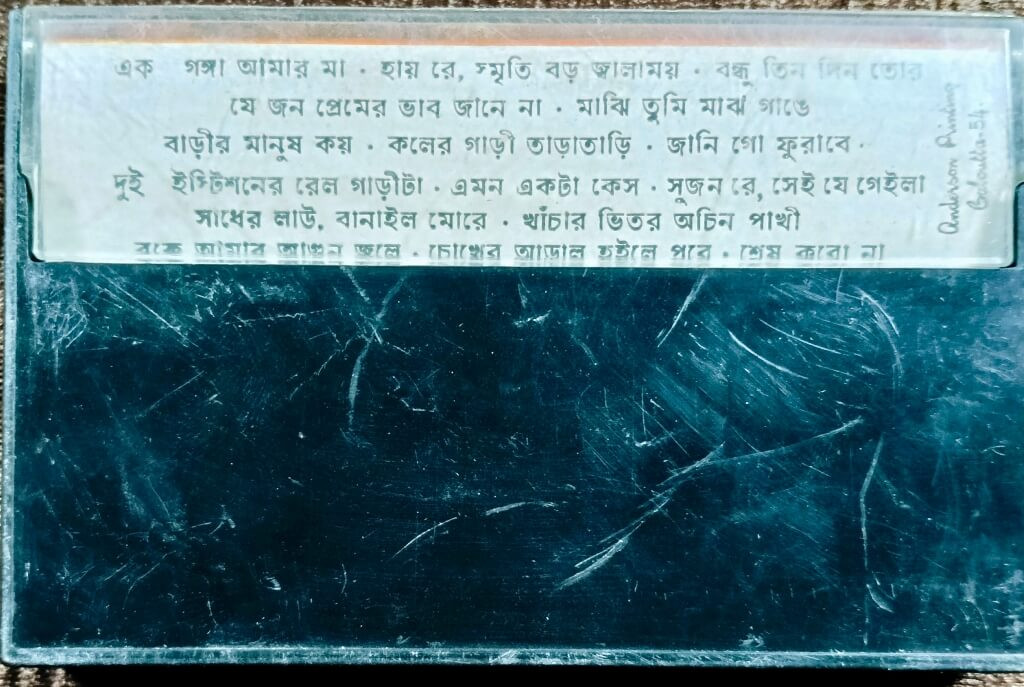 এক গঙ্গা আমার মা · হায় রে, স্মৃতি বড় জ্বালাময় · বন্ধু তিন দিন তোর
যে জন প্রেমের ভাব জানে না · মাঝি তুমি মাঝ গাঙে
বাড়ীর মানুষ কয় · কলের গাড়ী তাড়াতাড়ি · জানি গো ফুরাবে ·
দুই ইস্টিশনের রেল গাড়ীটা · এমন একটা কেস · সুজন রে, সেই যে গেইলা
সাধের লাউ, বানাইল মোরে · খাঁচার ভিতর অচিন পাখী
বুকে আমার আগুন জ্বলে · চোখের আড়াল হইলে পরে · শেষ করো না
Anderson Printing
Calcutta-54